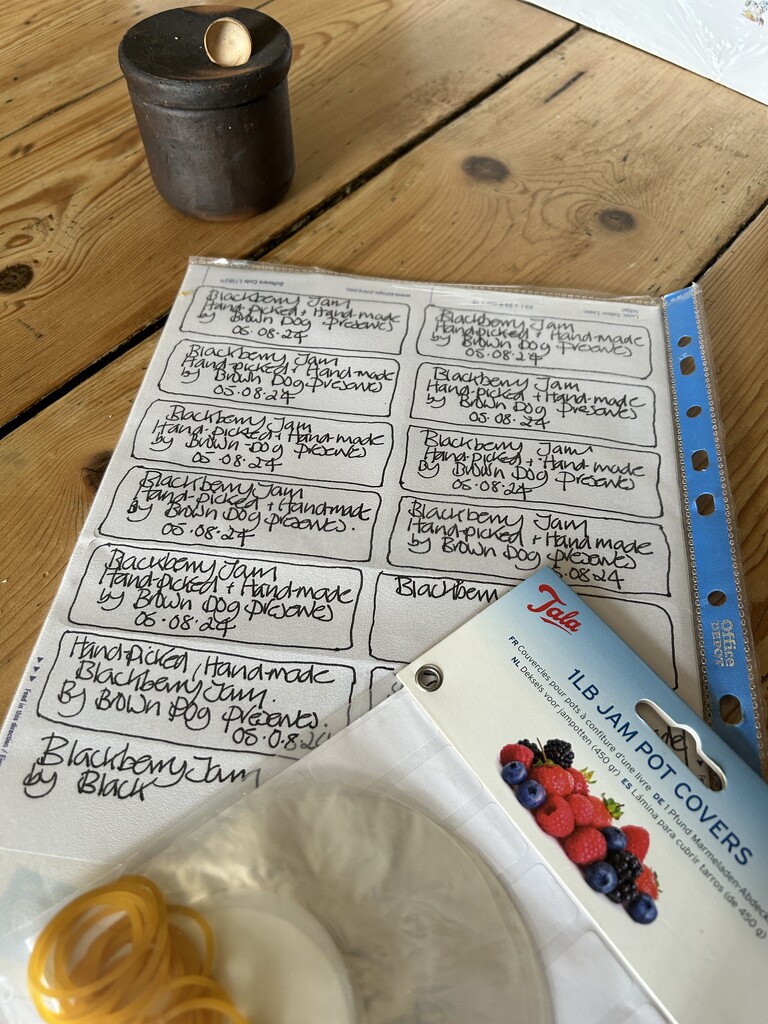 Blackberry Jam
Hand-picked + Hand-made
by Brown Dog Preserves
05.08.24
Blackberry Jam
Hand-picked + Hand-made
by Brown Dog Preserves
05.08.24
Blackberry Jam
Hand-picked + Hand-made
by Brown Dog Preserves
05.08.24
Blackberry Jam
Hand-picked + Hand-made
by Brown Dog Preserves
05.08.24
Blackberry Jam
Hand-picked + Hand-made
by Brown Dog Preserves
05.08.24
Blackberry Jam
Hand-picked + Hand-made
by Brown Dog Preserves
05.08.24
Blackberry Jam
Hand-picked + Hand-made
by Brown Dog Preserves.
05.08.24
Blackberry Jam
Hand-picked + Hand made
by Brown Dog preserves
5.08.24
Blackberry Jam
Hand-picked + Hand-made
by Brown Dog Preserves
05.08.24
Blackberry
Hand-Picked, Hand-made
Blackberry Jam.
By Brown Dog Preserves.
05.08.24
Blackberry Jam
by Black
Office
DEPOT
Tala
1LB JAM POT COVERS
FR Couvercles pour pots à confiture d'une livre DE 1 Pfund Marmeladen-Abdeck
NL Deksels voor jampotten (450 gr) ES Lámina para cubrir tarros (de 450 g)